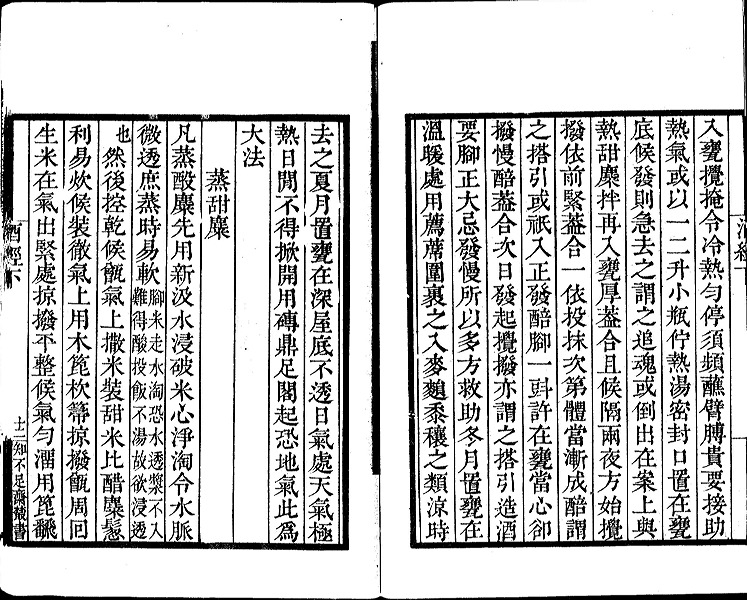 入甕攪掩令冷熱勻停須頻蘸臂膊貴要接助
熱氣或以一二升小瓶佇熱湯密封口置在甕
底候發則急去之謂之追魂或倒出在案上與
熱甜糜拌再入甕厚葢合且候隔兩夜方始攪
撥依前緊葢合一依投抹次第體當漸成醅謂
之搭引或祇入正發醅腳一㪷許在甕當心卻
撥慢醅葢合次日發起攪撥亦謂之搭引造酒
要腳正大忌發慢所以多方救助冬月置甕在
溫暖處用薦蓆圍裹之入麥䴬黍穰之類涼時
去之夏月置甕在深屋底不透日氣處天氣極
熱日閒不得掀開用磚鼎足閣起恐地氣此爲
大法
蒸甜糜
凡蒸酘糜先用新汲水浸破米心淨淘令水脈
微透庶蒸時易軟腳米走水淘恐水透漿不入
難得酸投飯不湯故欲浸透
也然後控乾候甑氣上撒米裝甜米比醋糜鬆
利易炊候裝徹氣上用木篦杴箒掠撥甑周回
生米在氣出緊處掠撥平整候氣勻溜用篦翻
酒經下
士二知不足齋叢書